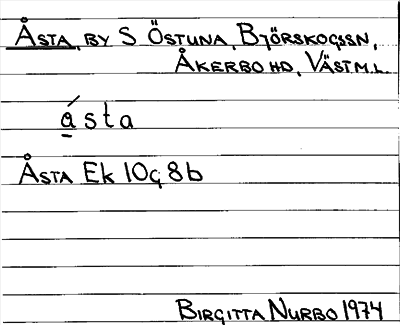 Åsta, by S Östuna, Björskogssn,
Åkerbo hd, Västm.l.
ásta
Åsta Ek 10g 8b
Birgitta Nurbo 1974